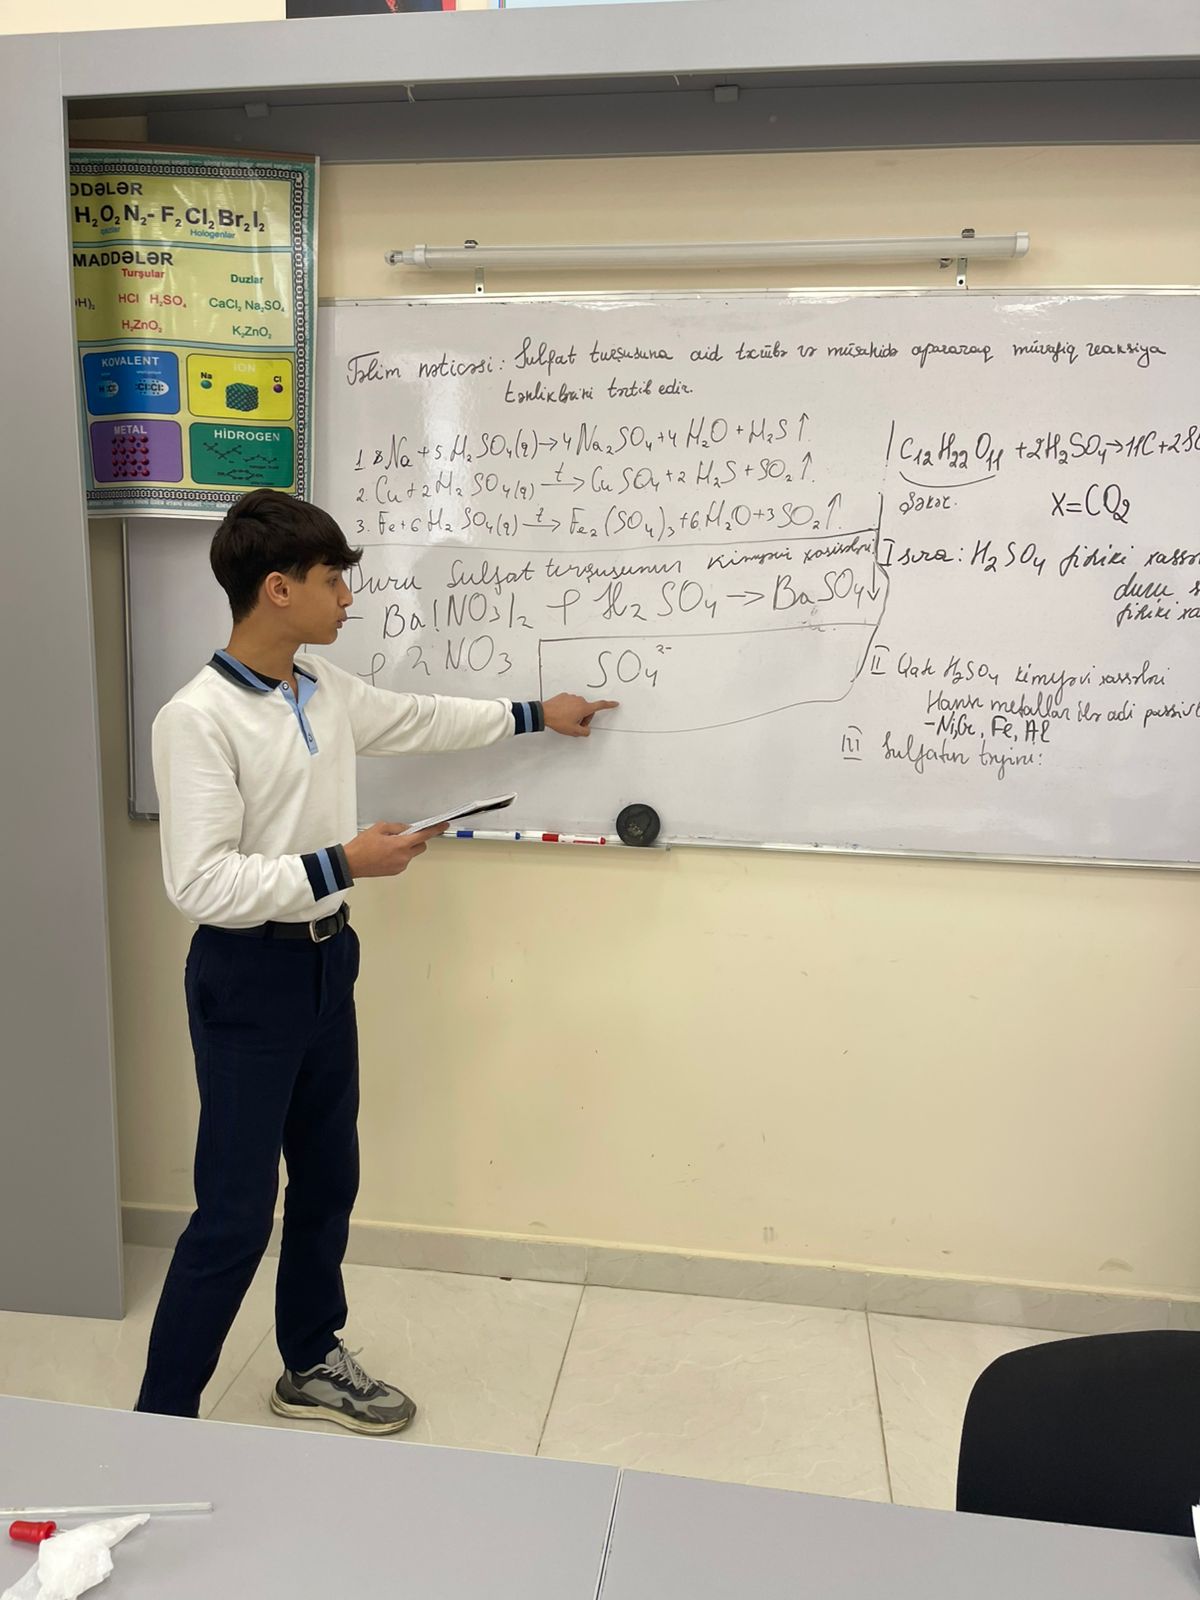 ODDƏLƏR
H₂O₂N₂-F₂Cl₂Br₂I₂
qazlar Hologenlər
MADDƏLƏR
Turşular Duzlar
OH)₂ HCl H₂SO₄ CaCl₂ Na₂SO₄
H₂ZnO₂ K₂ZnO₂
KOVALENT İON
Na Cl
METAL HİDROGEN
Təlim nəticəsi: Sulfat turşusuna aid təcrübə və müşahidə apararaq müvafiq reaksiya
tənliklərini tərtib edir.
1. 8Na + 5H₂SO₄(q) → 4Na₂SO₄ + 4H₂O + H₂S↑
2. Cu + 2H₂SO₄(q) —t→ CuSO₄ + 2H₂S + SO₂↑.
3. Fe + 6H₂SO₄(q) —t→ Fe₂(SO₄)₃ + 6H₂O + 3SO₂↑.
Duru Sulfat turşusunun kimyəvi xassələri
- Ba(NO₃)₂ + H₂SO₄ → BaSO₄↓
+ 2NO₃
SO₄²⁻
C₁₂H₂₂O₁₁ + 2H₂SO₄ → 11C + 2SO
Şəkər.
X=CO₂
I sıra: H₂SO₄ fiziki xassə
duru s
fiziki xa
II Qatı H₂SO₄ kimyəvi xassələri
Hansı metallar ilə adi passivl
-Ni, Cr, Fe, Al
III Sulfatın təyini: